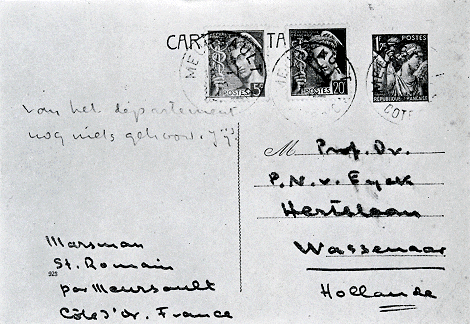 CARTE POSTALE
MEURSAULT
POSTES 5c
POSTES 20c
1F
POSTES
REPUBLIQUE FRANÇAISE
COTE
van het département
nog niets gehoord. Jij?
M Prof. Dr.
P. N. v. Eyck
Hertelaan
Wassenaar
Hollande
Marsman
St. Romain
928
par Meursault
Côte d'Or. France